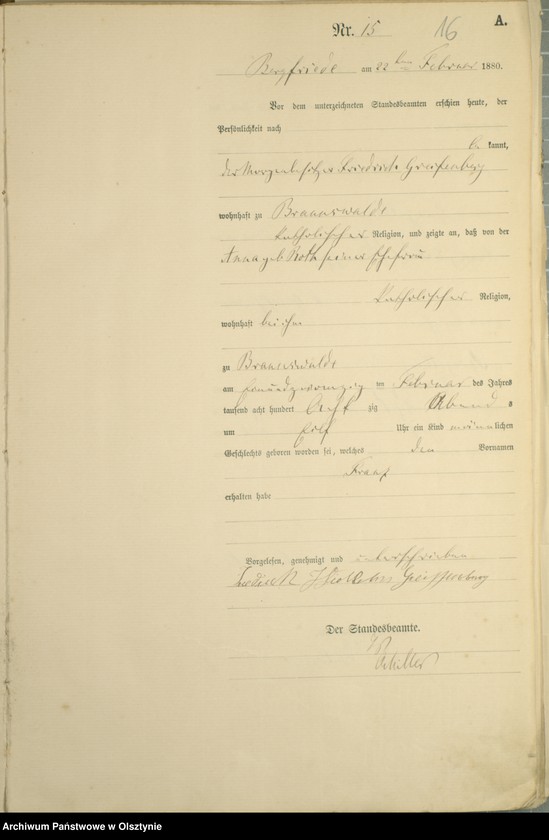 Nr. 15
16
A.
Bergfriede am 22ten Februar 1880.
Vor dem unterzeichneten Standesbeamten erschien heute, der
Persönlichkeit nach
be kannt,
der Friedrich Greifenberg
wohnhaft zu Braunswalde
katholischer Religion, und zeigte an, daß von der
Anna geb Roth seiner Ehefrau
katholischer Religion,
wohnhaft bei ihm
zu Braunswalde
am einundzwanzig ten Februar des Jahres
tausend acht hundert acht zig Abend s
um elf Uhr ein Kind männlichen
Geschlechts geboren worden sei, welches den Vornamen
Franz
erhalten habe
Vorgelesen, genehmigt und unterschrieben
Der Standesbeamte.
Archiwum Państwowe w Olsztynie